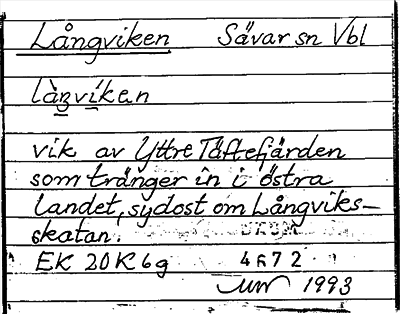 Långviken Sävar sn Vbl
làŋvíken
vik av Yttre Täftefjärden
som tränger in i östra
landet, sydost om Långviks-
skatan.
EK 20K6g 4672
1993